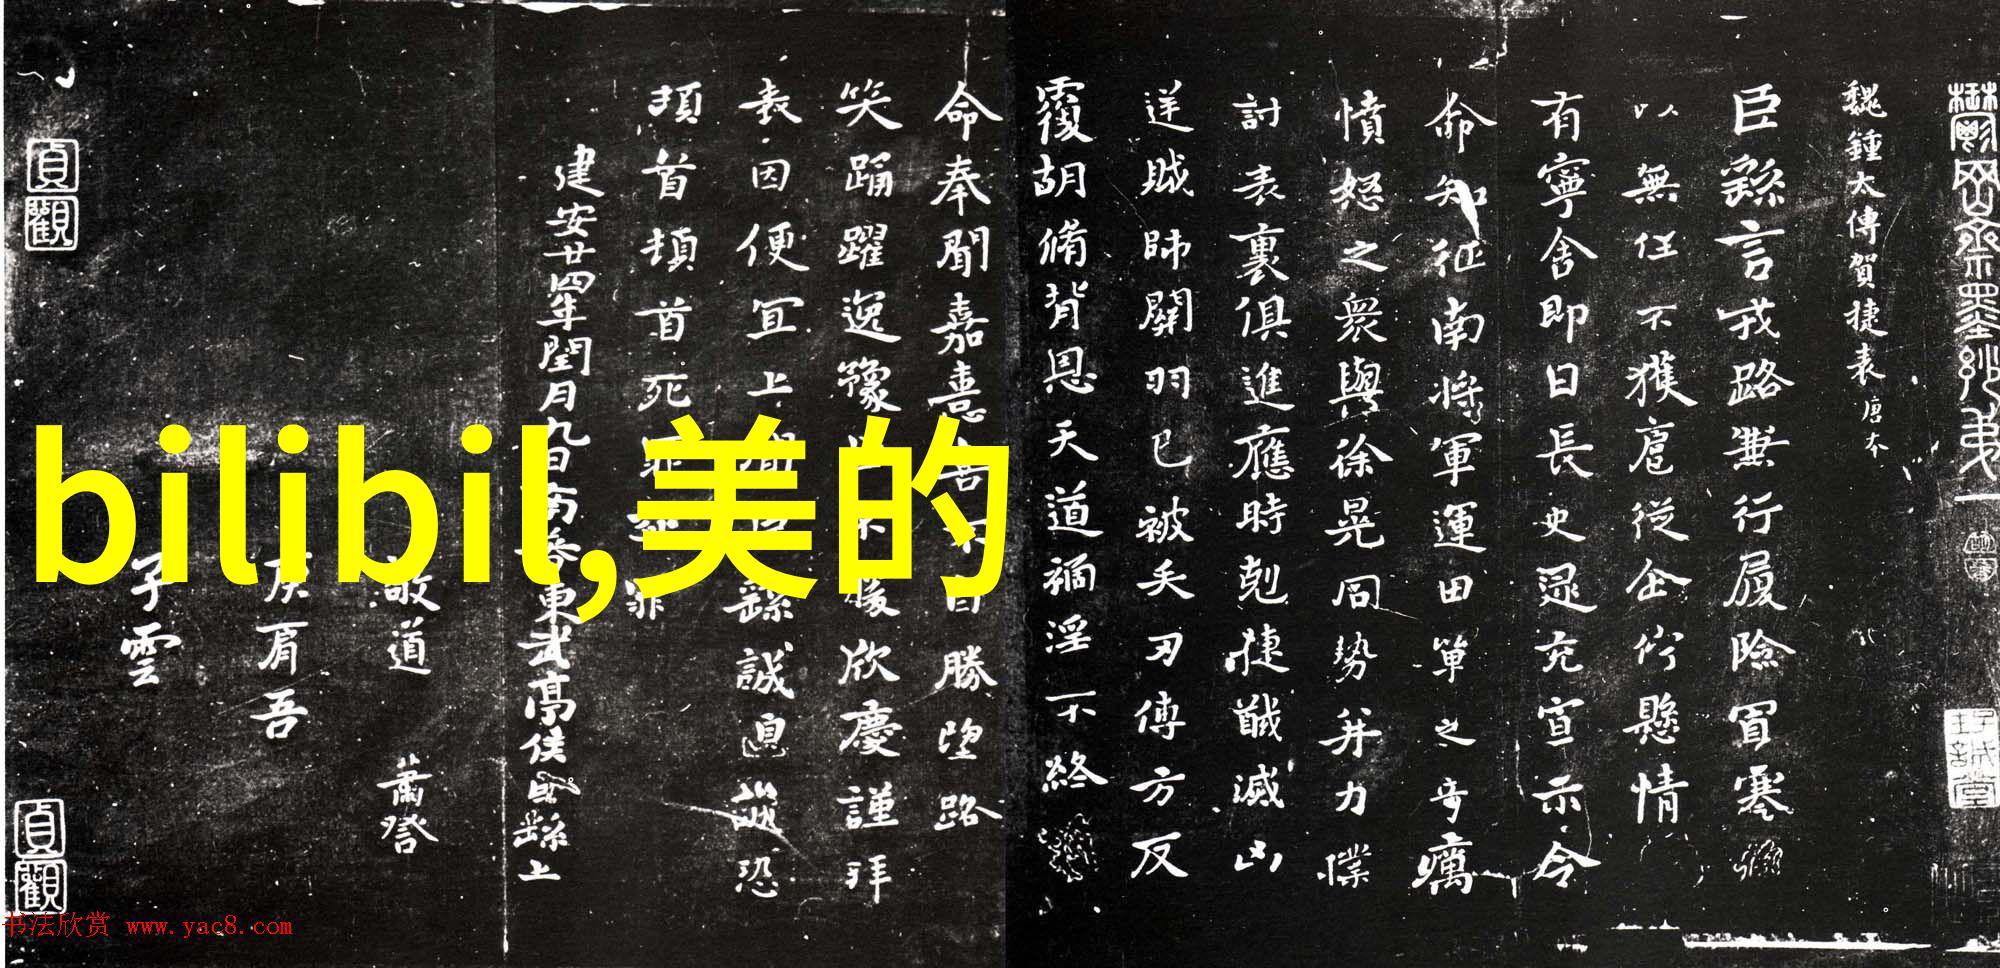 鬱岡齋墨妙第一
魏鍾太傅賀捷表 唐本
臣繇言戎路兼行履險冒寒
以無任不獲扈從企佇懸情
有寧舍即日長史逯充宣示令
命知征南將軍運田單之奇厲
憤怒之衆與徐晃同勢并力撲
討表裏俱進應時剋捷馘滅凶
逆賊帥關羽已被矢刃傅方反
覆胡脩背恩天道禍淫不終
命奉聞嘉憙喜不自勝望路
笑踊躍逸豫欣慶謹拜
表因便宜上聞臣繇誠惶誠恐
頓首頓首死罪死罪
建安廿四年閏月九日南蕃東武亭侯臣繇上
敬道 蕭詧
庾肩吾
子雲
貞觀
貞觀
bilibil,美的
书法欣赏 www.yac8.com